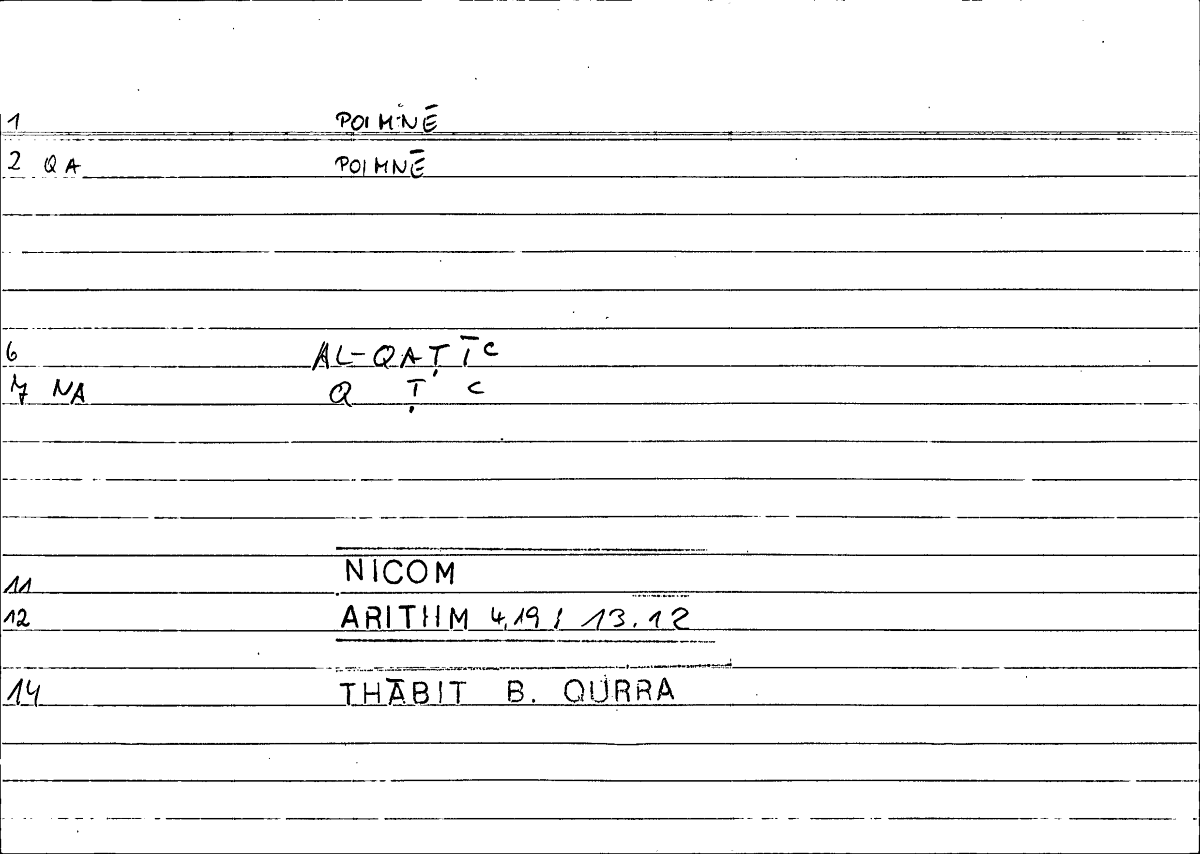 1 POIMNĒ
2 QA POIMNĒ
6 AL-QAṬĪC
7 NA Q Ṭ C
11 NICOM
12 ARITHM 4,19 / 13.12
14 THĀBIT B. QURRA